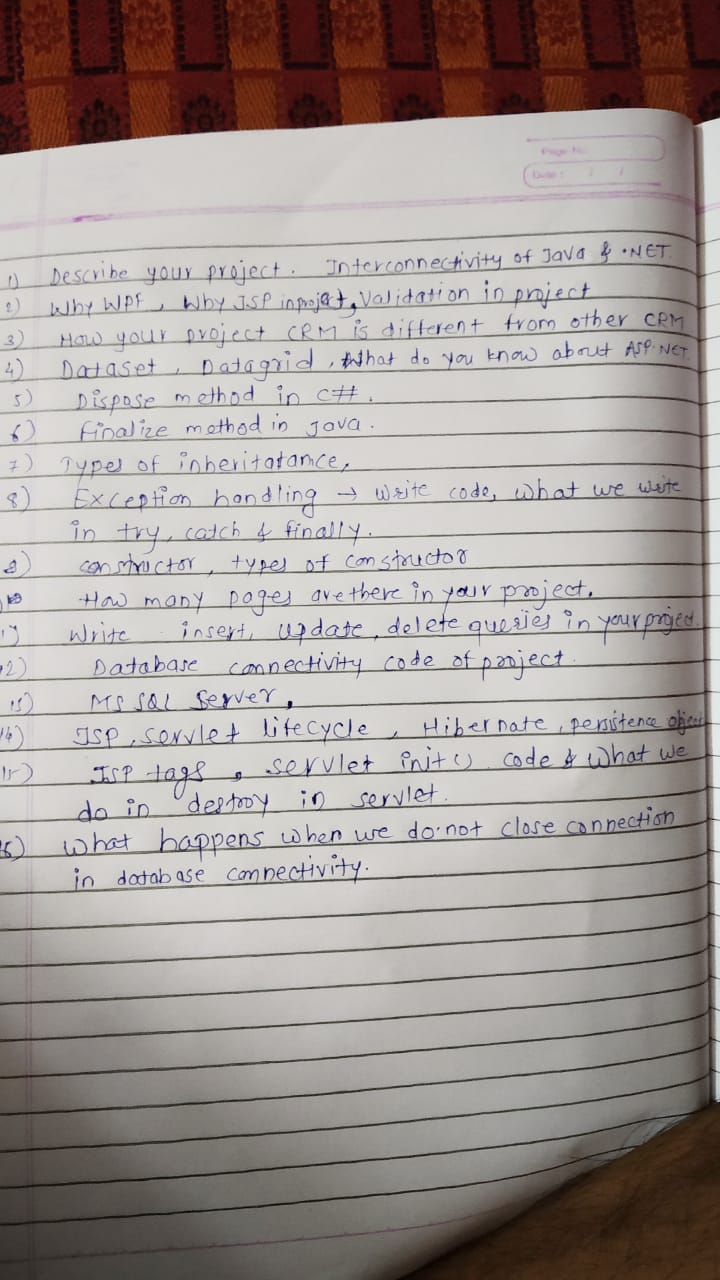 Page No.
Date : / /
1) Describe your project. Interconnectivity of Java & .NET.
2) Why WPF, Why JSP in project, Validation in project
3) How your project CRM is different from other CRM
4) Dataset, Datagrid, What do you know about ASP.NET
5) Dispose method in C#.
6) finalize method in Java.
7) Types of inheritatance,
8) Exception handling → Write code, what we write
in try, catch & finally.
9) constructor, types of constructor
How many pages are there in your project.
Write insert, update, delete queries in your project.
12) Database connectivity code of project.
13) MS SQL Server,
14) JSP, servlet lifecycle, Hibernate, persistence object
15) JSP tags, servlet init() code & what we
do in destroy in servlet.
16) What happens when we do not close connection
in database connectivity.